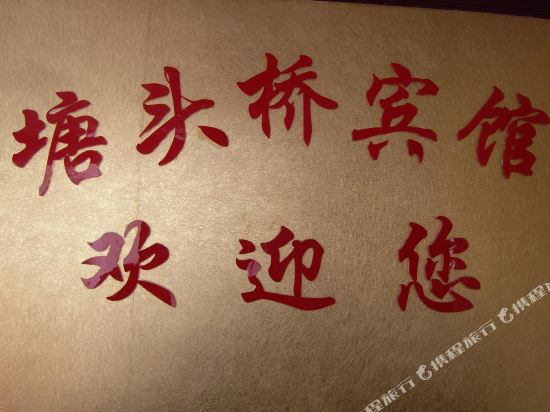 塘头桥宾馆
欢迎您
携程旅行 携程旅行